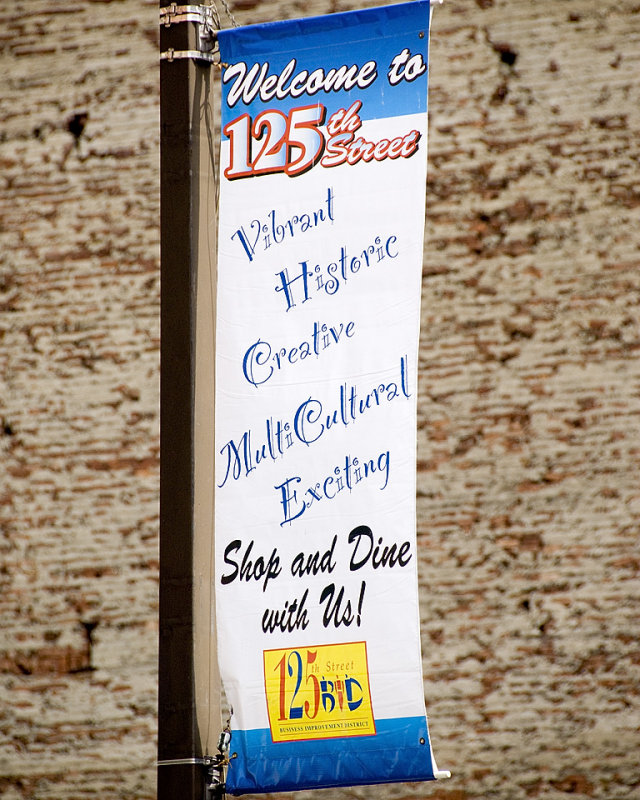 Welcome to
125th Street
Vibrant
Historic
Creative
MultiCultural
Exciting
Shop and Dine
with Us!
125th Street
BID
BUSINESS IMPROVEMENT DISTRICT